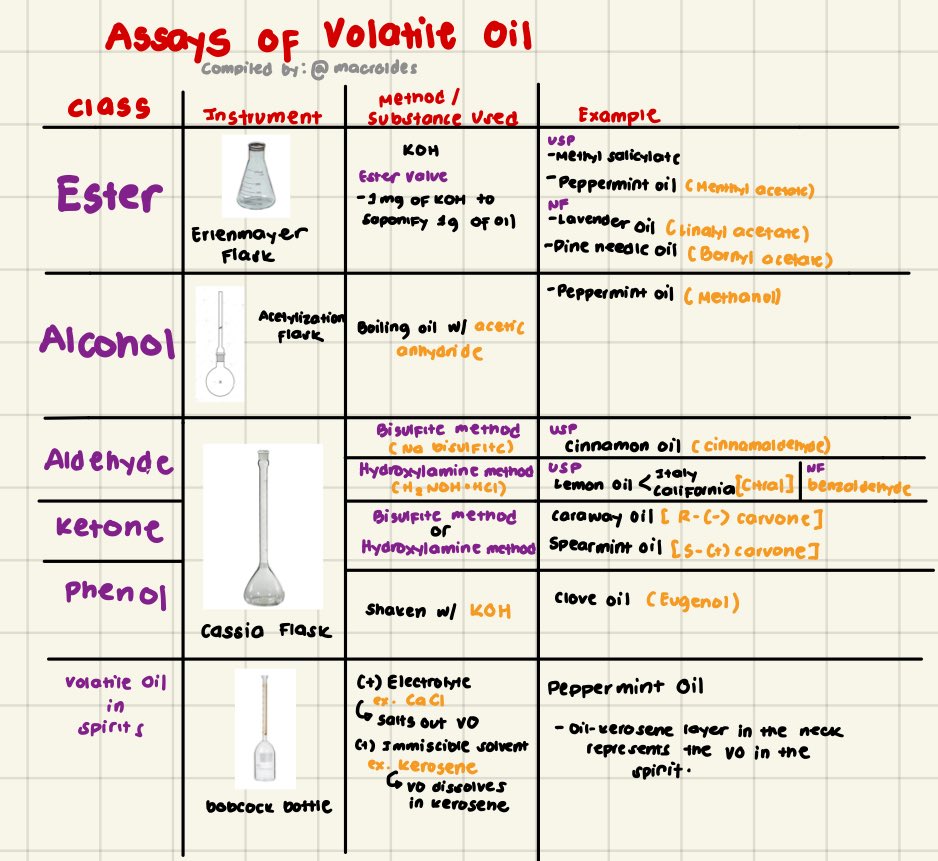 Assays of Volatile Oil
Compiled by: @macroides
Class
Instrument
Method /
Substance Used
Example
Ester
Erlenmayer
Flask
KOH
Ester Value
- 1mg of KOH to
saponify 1g of oil
USP
- Methyl salicylate
- Peppermint oil (Menthyl acetate)
NF
- Lavender oil (Linalyl acetate)
- Pine needle oil (Bornyl acetate)
Alcohol
Acetylization
Flask
Boiling oil w/ acetic
anhydride
- Peppermint oil (Methanol)
Aldehyde
Bisulfite method
(Na bisulfite)
USP
Cinnamon oil (cinnamaldehyde)
Hydroxylamine method
(H2NOH•HCl)
USP
Lemon oil < Italy
California [Citral]
NF
benzaldehyde
Ketone
Bisulfite method
or
Hydroxylamine method
Caraway oil [R-(-) carvone]
Spearmint oil [S-(+) carvone]
Phenol
Cassia Flask
Shaken w/ KOH
Clove oil (Eugenol)
Volatile Oil
in
Spirits
bobcock bottle
(+) Electrolyte
ex. CaCl
salts out VO
(+) Immiscible solvent
ex. kerosene
VO dissolves
in kerosene
Peppermint Oil
- Oil-kerosene layer in the neck
represents the VO in the
spirit.